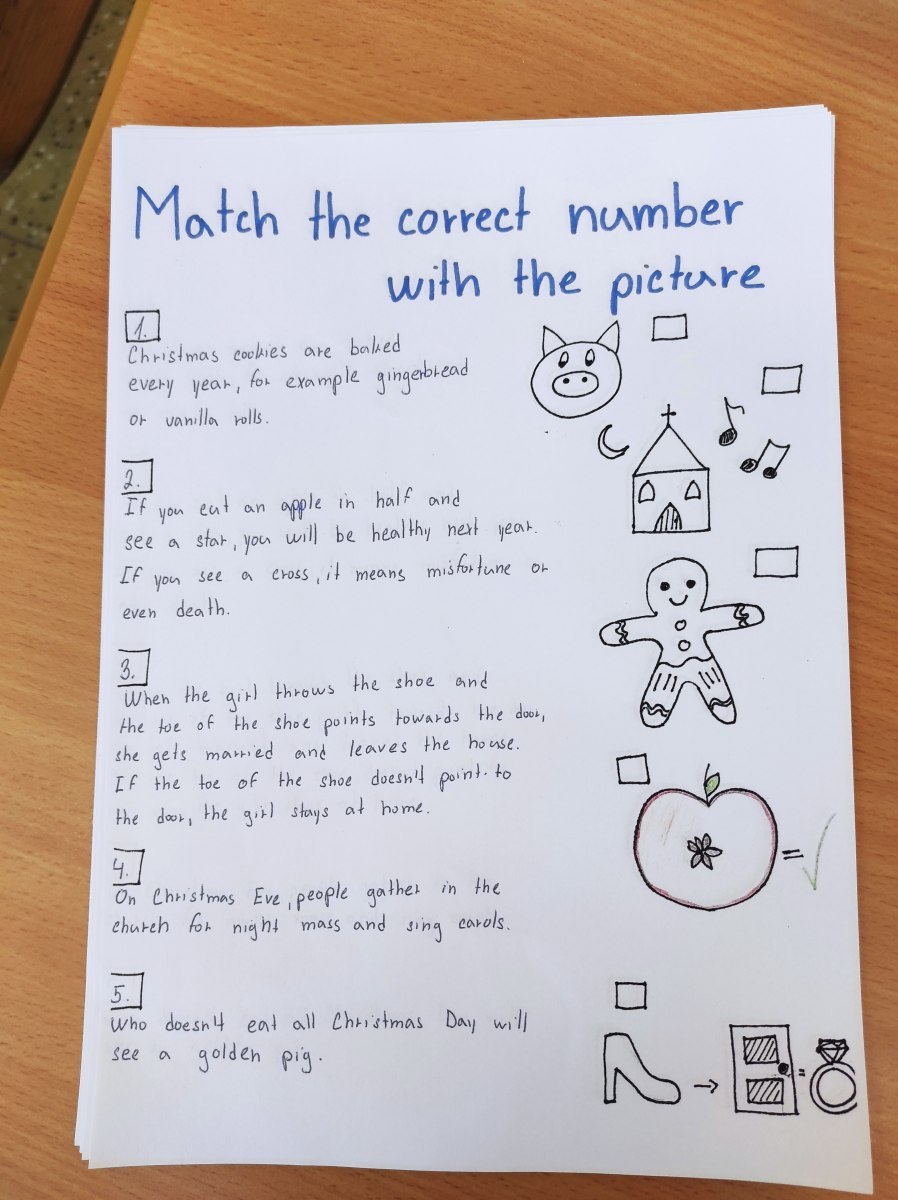 Match the correct number
with the picture
1.
Christmas cookies are baked
every year, for example gingerbread
or vanilla rolls.
2.
If you cut an apple in half and
see a star, you will be healthy next year.
If you see a cross, it means misfortune or
even death.
3.
When the girl throws the shoe and
the toe of the shoe points towards the door,
she gets married and leaves the house.
If the toe of the shoe doesn't point to
the door, the girl stays at home.
4.
On Christmas Eve, people gather in the
church for night mass and sing carols.
5.
Who doesn't eat all Christmas Day will
see a golden pig.